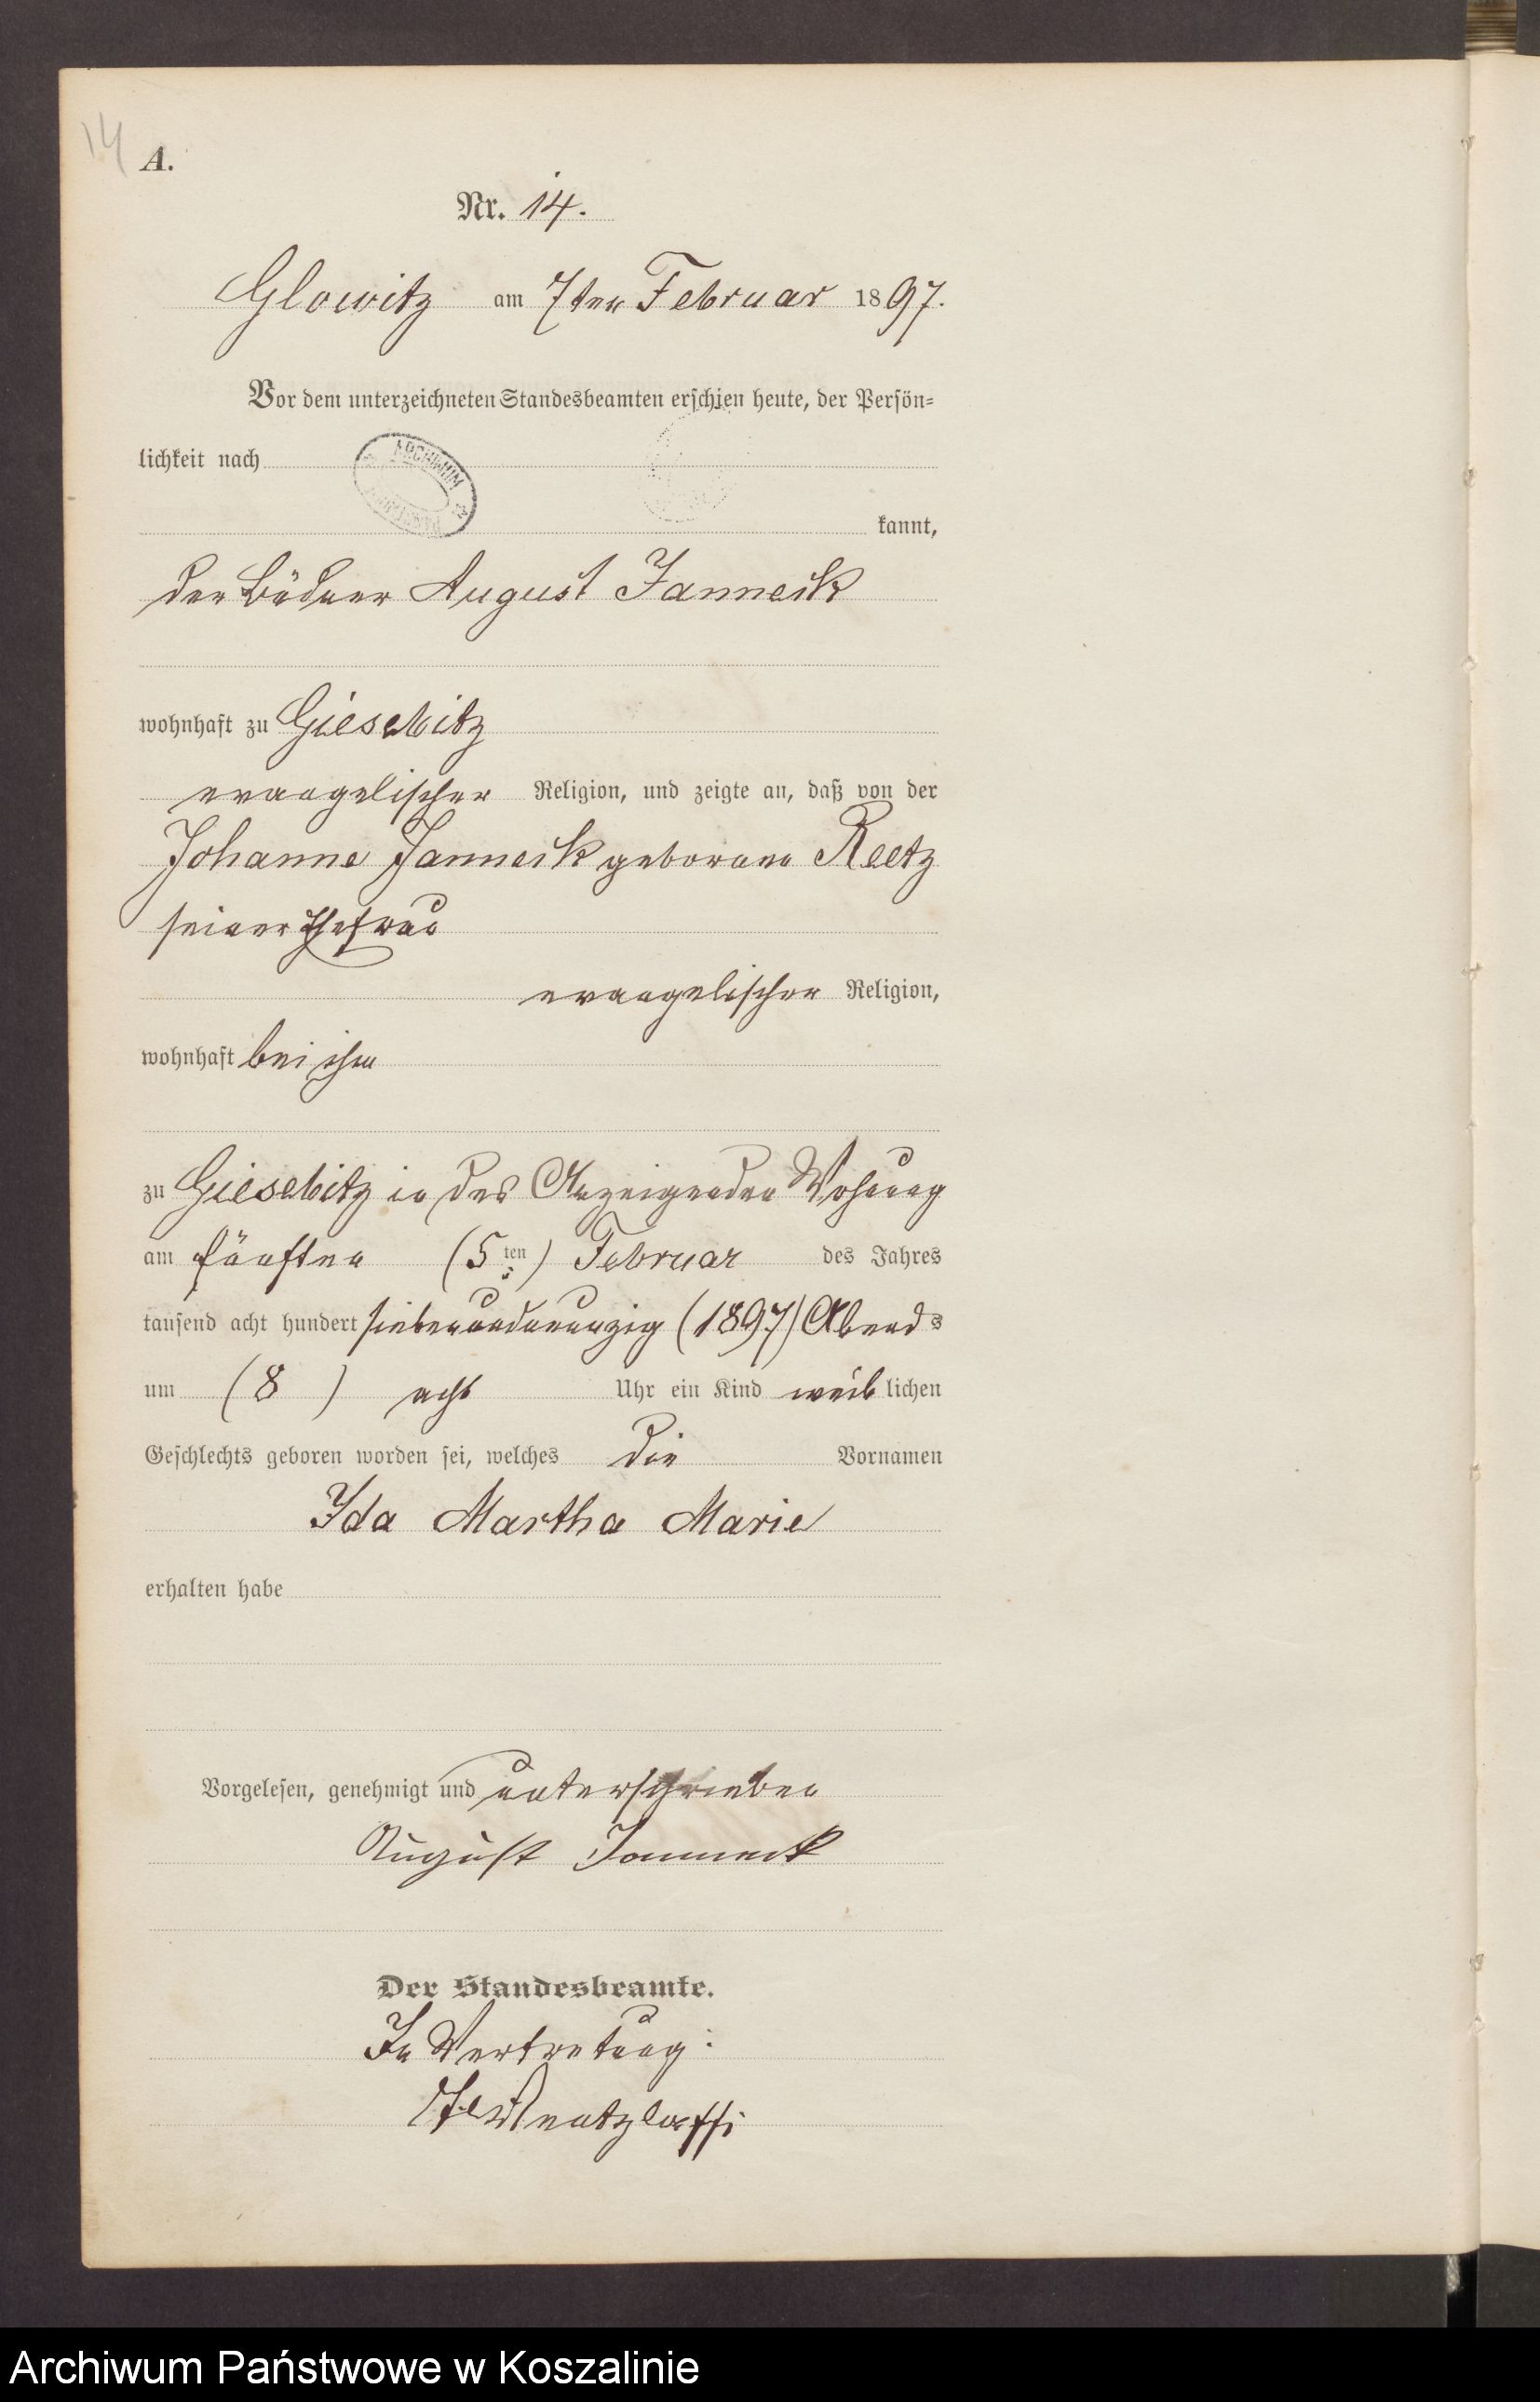 14
A.
Nr. 14.
Glowitz am 7ten Februar 1897.
Vor dem unterzeichneten Standesbeamten erschien heute, der Persön-
lichkeit nach
ARCHIWUM
kannt,
der Büdner August Janneck
wohnhaft zu Giesebitz
evangelischer Religion, und zeigte an, daß von der
Johanne Janneck geborene Reetz
seiner Ehefrau
evangelischer Religion,
wohnhaft bei ihm
zu Giesebitz in des Anzeigenden Wohnung
am fünften (5ten) Februar des Jahres
tausend acht hundert siebenundneunzig (1897) Abends
um (8) acht Uhr ein Kind weiblichen
Geschlechts geboren worden sei, welches die Vornamen
Ida Martha Marie
erhalten habe
Vorgelesen, genehmigt und unterschrieben
August Janneck
Der Standesbeamte.
In Vertretung:
Archiwum Państwowe w Koszalinie